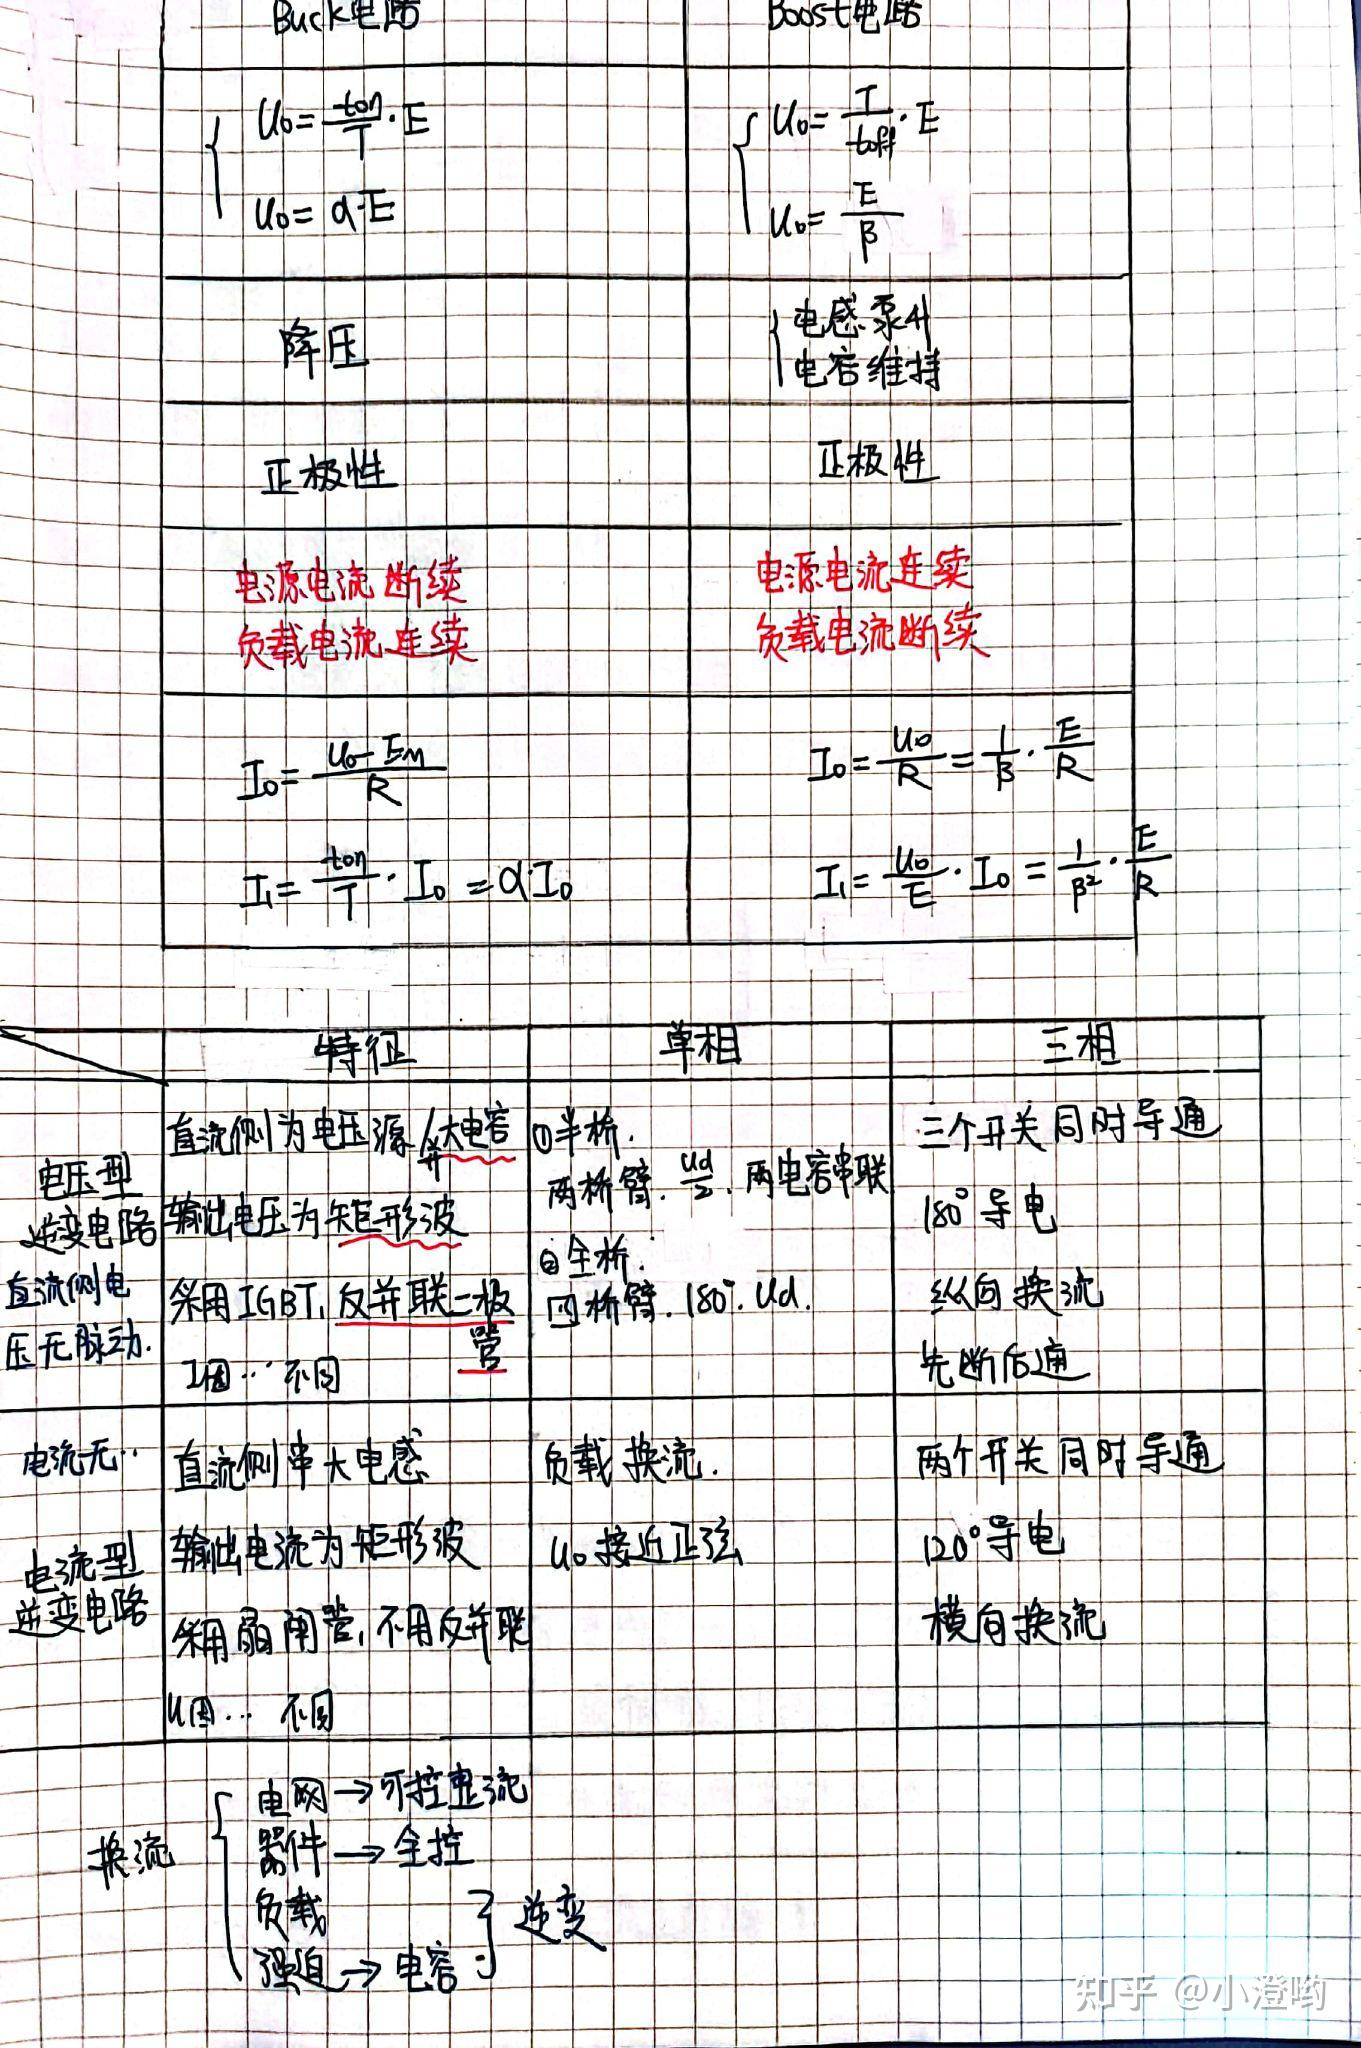 Buck电路 Boost电路
U₀=ton/T·E U₀=T/toff·E
U₀=α·E U₀=E/β
降压 电感泵升
电容维持
正极性 正极性
电源电流断续 电源电流连续
负载电流连续 负载电流断续
I₀=(U₀-Em)/R I₀=U₀/R=1/β·E/R
I₁=ton/T·I₀=α·I₀ I₁=U₀/E·I₀=1/β²·E/R
特征 单相 三相
电压型
逆变电路
直流侧电
压无脉动.
直流侧为电压源/并大电容
输出电压为矩形波
采用IGBT,反并联二极
管
I因‥不同
①半桥.
两桥臂.Ud/2.两电容串联
②全桥.
四桥臂.180°.Ud.
三个开关同时导通
180°导电
纵向换流
先断后通
电流无‥
电流型
逆变电路
直流侧串大电感
输出电流为矩形波
采用闸管,不用反并联
U因… 不同
负载换流.
U₀接近正弦
两个开关同时导通
120°导电
横向换流
换流
电网→可控整流
器件→全控
负载
强迫→电容
逆变
知乎 @小澄哟